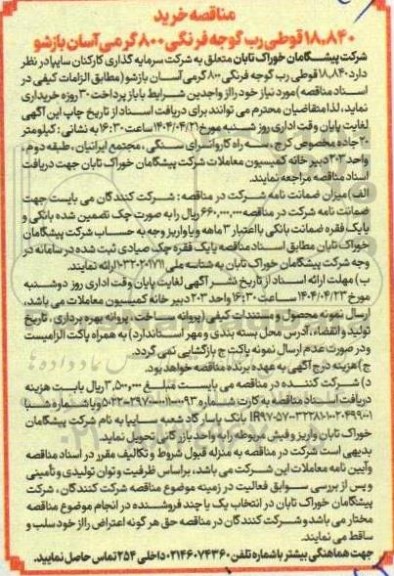 مناقصه خرید
۱۸,۸۴۰ قوطی رب گوجه فرنگی ۸۰۰ گرمی آسان بازشو
شرکت پیشگامان خوراک تابان متعلق به شرکت سرمایه گذاری کارکنان سایپا در نظر
دارد ۱۸,۸۴۰ قوطی رب گوجه فرنگی ۸۰۰ گرمی آسان بازشو (مطابق الزامات کیفی در
اسناد مناقصه) مورد نیاز خود را از واجدین شرایط با باز پرداخت ۳۰ روزه خریداری
نماید، لذا متقاضیان محترم می توانند برای دریافت اسناد از تاریخ چاپ این آگهی
لغایت پایان وقت اداری روز شنبه مورخ ۱۴۰۴/۰۴/۲۱ ساعت ۱۶:۳۰ به نشانی: کیلومتر
۲۰ جاده مخصوص کرج، سه راه کاروانسرای سنگی، مجتمع ایرانیان، طبقه دوم،
واحد ۲۰۳ دبیرخانه کمیسیون معاملات شرکت پیشگامان خوراک تابان جهت دریافت
اسناد مناقصه مراجعه نمایند.
الف) میزان ضمانت نامه شرکت در مناقصه: شرکت کنندگان می بایست جهت
ضمانت نامه شرکت در مناقصه ۶۶۰,۰۰۰,۰۰۰ ریال را به صورت چک تضمین شده بانکی و
یا یک فقره ضمانت بانکی با اعتبار ۳ ماهه و یا واریز وجه به حساب شرکت پیشگامان
خوراک تابان مطابق اسناد مناقصه یا یک فقره چک صیادی ثبت شده در سامانه در
وجه شرکت پیشگامان خوراک تابان به شناسه ملی ۱۰۳۲۰۲۰۱۷۱۱ ارائه نمایند.
ب) مهلت ارائه اسناد از تاریخ نشر آگهی لغایت پایان وقت اداری روز دوشنبه
مورخ ۱۴۰۴/۰۴/۲۳ ساعت ۱۶:۳۰ واحد ۲۰۳ دبیر خانه کمیسیون معاملات می باشد،
ارسال نمونه محصول و مستندات کیفی (پروانه ساخت، پروانه بهره برداری، تاریخ
تولید و انقضاء، آدرس محل بسته بندی و مهر استاندارد) به همراه پاکت الزامیست
و در صورت عدم ارسال نمونه پاکت ج بازگشایی نمی گردد.
ج) هزینه درج آگهی به عهده برنده مناقصه خواهد بود.
د) شرکت کننده در مناقصه می بایست مبلغ ۳,۵۰۰,۰۰۰ ریال بابت هزینه
دریافت اسناد مناقصه به کارت شماره و یا شماره شبا
بانک پاسارگاد شعبه سایپا به نام شرکت پیشگامان
خوراک تابان واریز و فیش مربوطه را به واحد بازرگانی تحویل نماید.
بدیهی است شرکت در مناقصه به منزله قبول شروط و تکالیف مقرر در اسناد مناقصه
و آیین نامه معاملات این شرکت می باشد، براساس ظرفیت و توان تولیدی و تأمینی
و پس از بررسی سوابق فعالیت در زمینه موضوع مناقصه شرکت کنندگان، شرکت
پیشگامان خوراک تابان در انتخاب یک یا چند فروشنده در انجام موضوع مناقصه
مختار می باشد و شرکت کنندگان در مناقصه حق هر گونه اعتراض را از خود سلب و
ساقط می نمایند.
جهت هماهنگی بیشتر با شماره تلفن ۰۲۱۴۶۰۷۴۳۶۰ داخلی ۲۵۴ تماس حاصل نمایید.